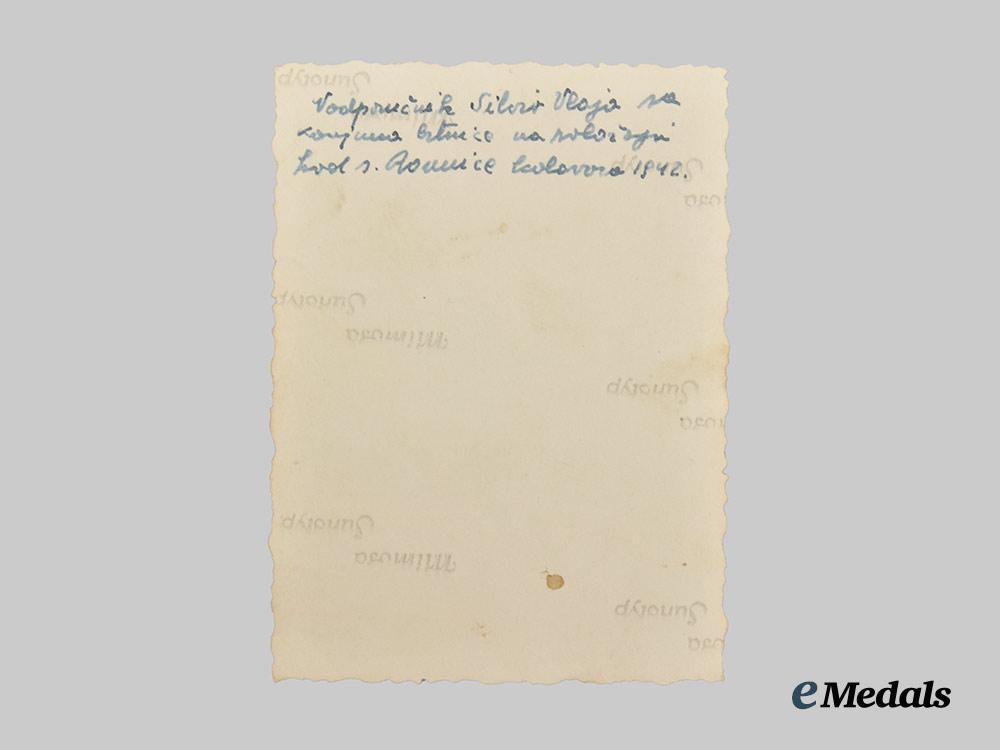 Sunotyp
Vodporučnik Silvio Vlaja sa
konjima bitnice na položaju
kod s. Ravnice kolovoza 1942.
Sunotyp
Sunotyp
Mimosa
Sunotyp
Sunotyp
Mimosa
Sunotyp
eMedals